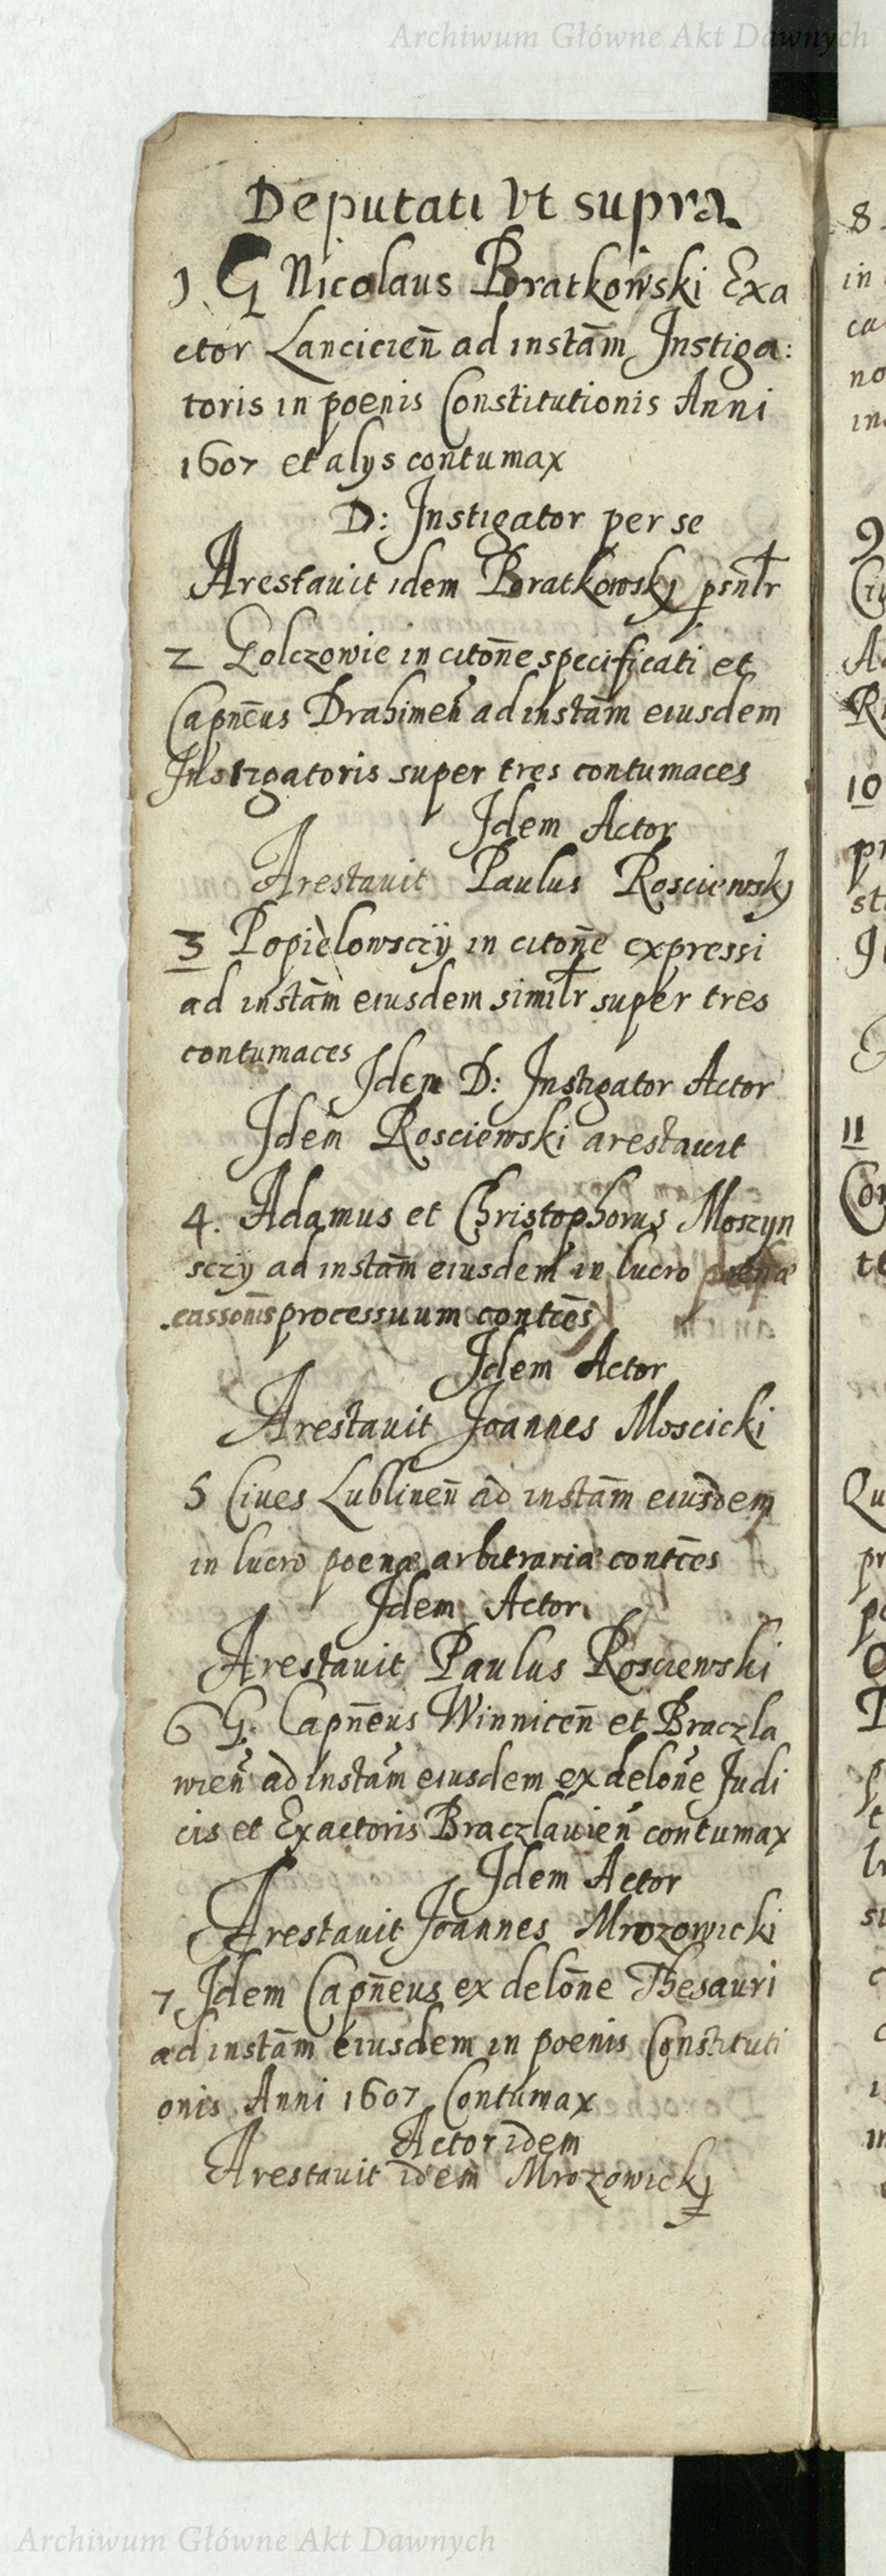 Archiwum Główne Akt Dawnych
Deputati Vt supra
1 G Nicolaus Bratkowski Exa
ctor Lancicien̄ ad instam̄ Instiga:
toris in poenis Constitutionis Anni
1607 et alys contumax
D: Instigator per se
Arestauit idem Bratkowsky psnlr
2 Golczowie in citone specificati et
Capneus Drahimen̄ ad instam̄ eiusdem
Instigatoris super tres contumaces
Idem Actor
Arestauit Paulus Rosciewsky
3 Popielowsczÿ in citone expressi
ad instam̄ eiusdem similr super tres
contumaces
Idem D: Instigator Actor
Idem Rosciewski arestauit
4. Adamus et Christophorus Moszyn
sczy ad instam̄ eiusdem in lucro poenæ
cassonis processuum contces
Idem Actor
Arestauit Joannes Moscicki
5 Ciues Lublinen̄ ad instam̄ eiusdem
in lucro poenæ arbitrariæ contces
Idem Actor
Arestauit Paulus Rosciewski
6 G. Capneus Winnicen̄ et Braczla
wien̄ ad instam̄ eiusdem ex delone Judi
cis et Exactoris Braczlauien̄ contumax
Idem Actor
Arestauit Joannes Mrozowicki
7 Idem Capneus ex delone Thesauri
ad instam̄ eiusdem in poenis Constituti
onis Anni 1607 Contumax
Actor idem
Arestauit idem Mrozowicky
8
in
ca
no
in
9
Ciu
A
R
10
pr
st
11
Con
te
Qu
pr
Archiwum Główne Akt Dawnych